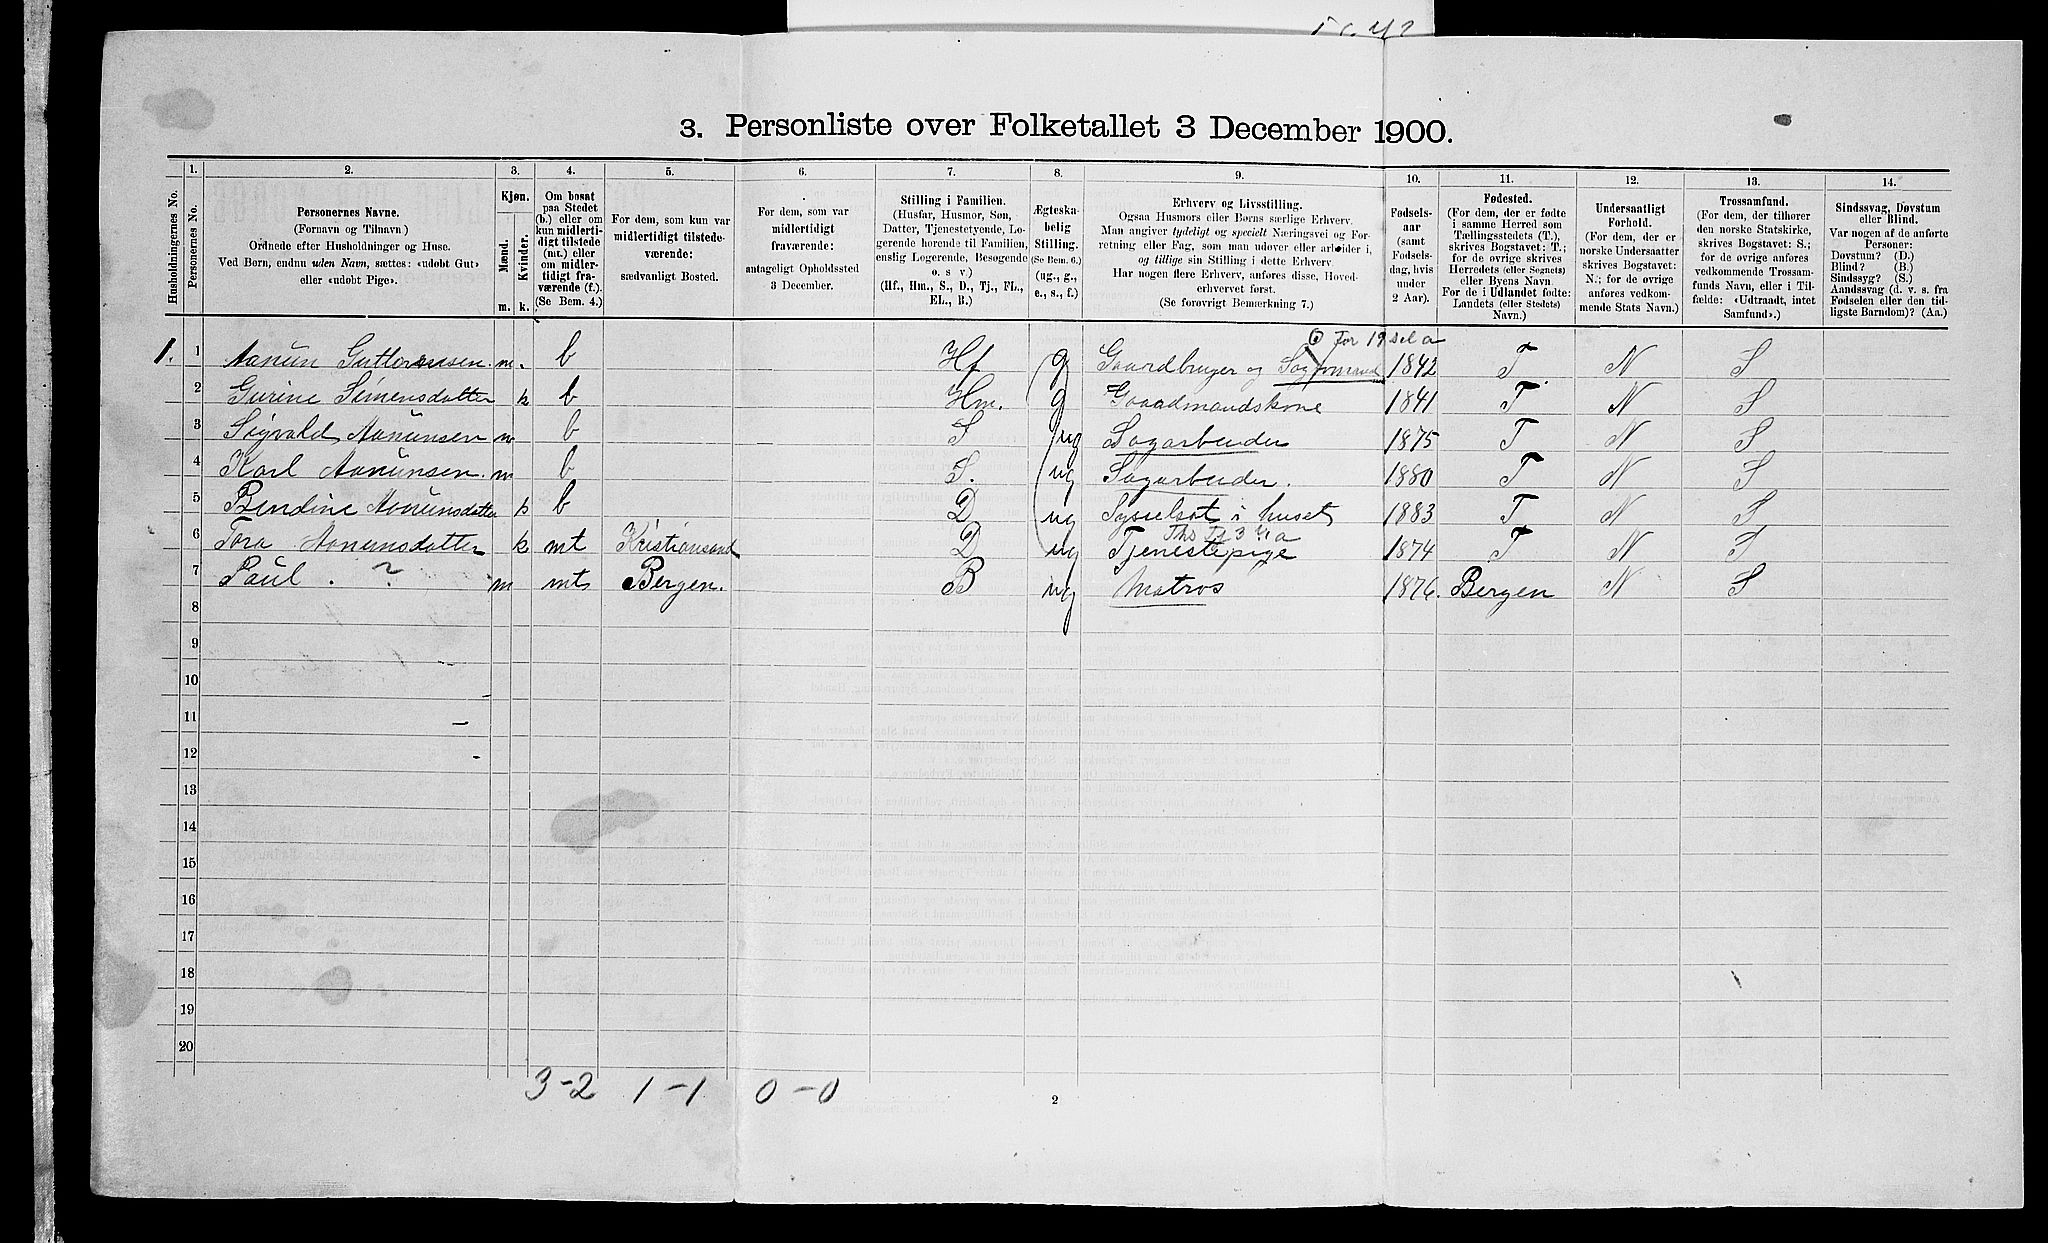 3. Personliste over Folketallet 3 December 1900.
Husholdningernes No.
1.
Personernes No.
2.
Personernes Navne.
(Fornavn og Tilnavn)
Ordnede efter Husholdninger og Huse.
Ved Børn, endnu uden Navn, sættes: «udøbt Gut»
eller «udøbt Pige».
3.
Kjøn.
Mænd.
Kvinder.
m. k.
4.
Om bosat
paa Stedet
(b.) eller om
kun midlerti-
digt tilstede
(mt.) eller
om midler-
tidigt fra-
værende (f.).
(Se Bem. 4.)
5.
For dem, som kun var
midlertidigt tilstede-
værende:
sædvanligt Bosted.
6.
For dem, som var
midlertidigt
fraværende:
antageligt Opholdssted
3 December.
7.
Stilling i Familien.
(Husfar, Husmor, Søn,
Datter, Tjenestetyende, Lo-
gerende hørende til Familien,
enslig Logerende, Besøgende
o. s. v.)
(Hf., Hm., S., D., Tj., FL.,
EL., B.)
8.
Ægteska-
belig
Stilling.
(Se Bem. 6.)
(ug., g.,
e., s., f.)
9.
Erhverv og Livsstilling.
Ogsaa Husmors eller Børns særlige Erhverv.
Man angiver tydeligt og specielt Næringsvei og For-
retning eller Fag, som man udøver eller arbeider i,
og tillige sin Stilling i dette Erhverv.
Har nogen flere Erhverv, anføres disse, Hoved-
erhvervet først.
(Se forøvrigt Bemerkning 7.)
10.
Fødsels-
aar
(samt
Fødsels-
dag, hvis
under
2 Aar).
11.
Fødested.
(For dem, der er fødte
i samme Herred som
Tællingsstedets (T.),
skrives Bogstavet: T.;
for de øvrige skrives
Herredets (eller Sognets)
eller Byens Navn.
For de i Udlandet fødte:
Landets (eller Stedets)
Navn.)
12.
Undersaatligt
Forhold.
(For dem, der er
norske Undersaatter
skrives Bogstavet:
N.; for de øvrige
anføres vedkom-
mende Stats Navn.)
13.
Trossamfund.
(For dem, der tilhører
den norske Statskirke,
skrives Bogstavet: S.;
for de øvrige anføres
vedkommende Trossam-
funds Navn, eller i Til-
fælde: «Udtraadt, intet
Samfund».)
14.
Sindssvag, Døvstum
eller Blind.
Var nogen af de anførte
Personer:
Døvstum? (D.)
Blind? (B.)
Sindssyg? (S.)
Aandssvag (d. v. s. fra
Fødselen eller den tid-
ligste Barndom)? (Aa.)
1. 1 Aanun Guttormsen. m. b Hf g Gaardbruger og Sagmand 1842 T N S
2 Gurine Simensdatter k b Hm. g Gaardmandskone 1841 T N S
3 Sigvald Aanunsen m b S ug Sagarbeider 1875 T N S
4 Karl Aanunsen. m b S. ug Sagarbeider. 1880 T N S
5 Bendine Aanunsdatter k b D ug Sysselsat i huset 1883 T N S
6 Tora Aanunsdatter k mt Kristiansand D ug Tjenestepige 1874 T N S
7 Paul . ? m mt Bergen. B ug Matros 1876. Bergen N S
8
9
10
11
12
13
14
15
16
17
18
19
20
3-2 1-1 0-0
2